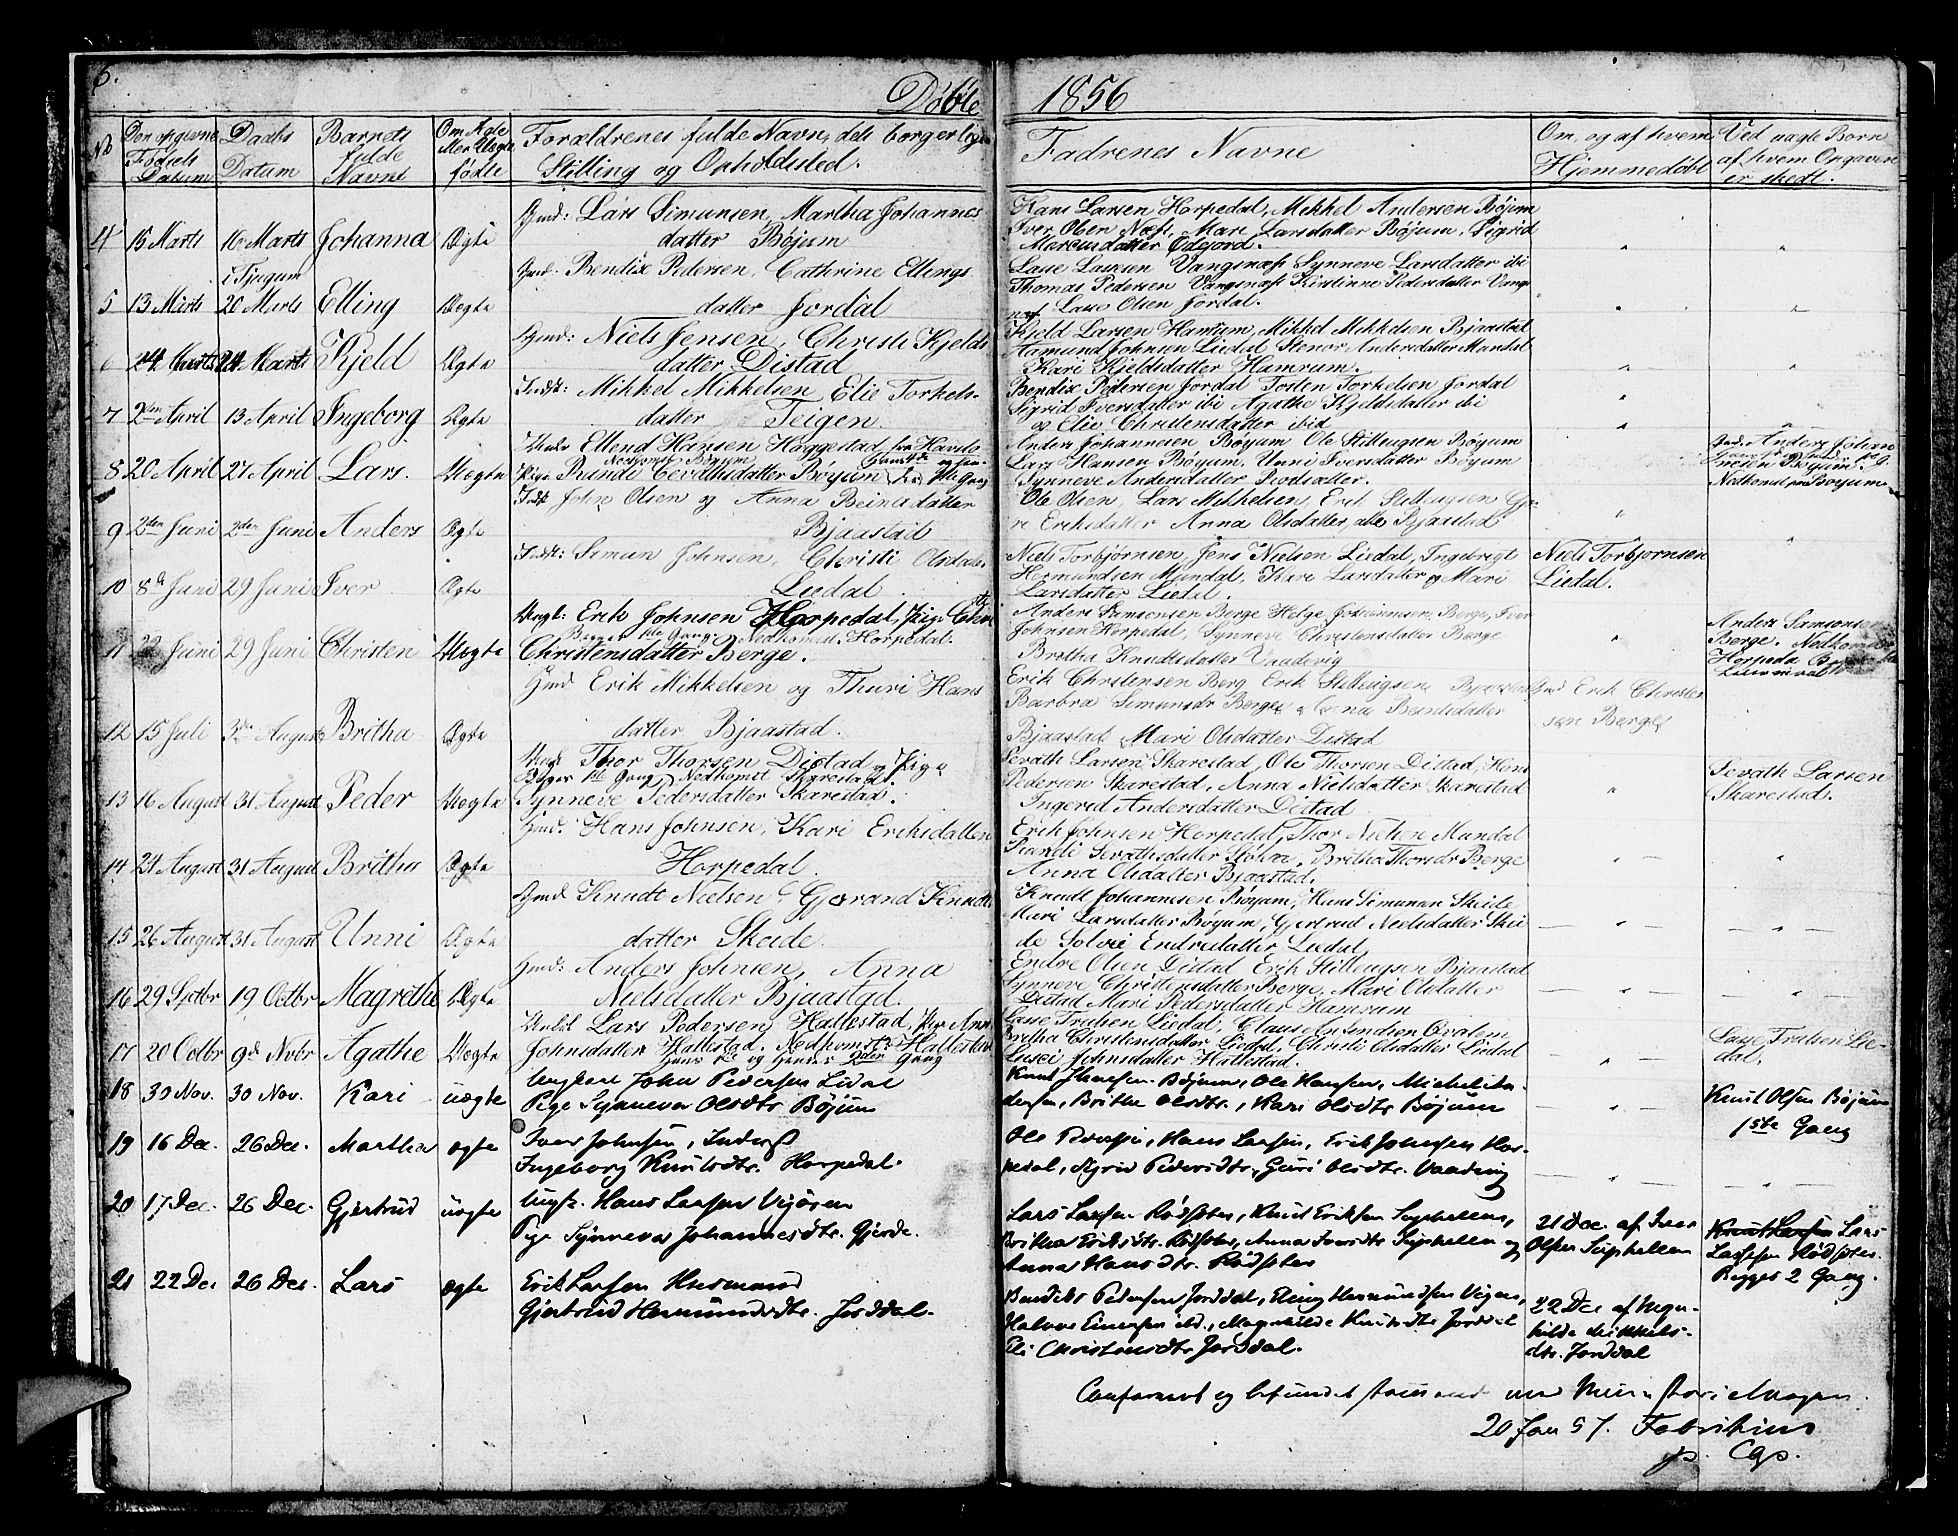 6.
Døbte 1856
No
Den opgivne Fødsels Datum
Daabs Datum
Barnets fulde Navne
Om Ægte eller Uægte fødte
Forældrenes fulde Navne, deres borgerlige Stilling og Opholdssted.
Fadrenes Navne
Om og af hvem Hjemmedøbt
Ved uægte Børn af hvem Opgaven er skedt.
4 15 Marts 16 Marts Johanna Ægte
Gmd: Lars Simunsen, Martha Johannes
datter Bøjum
Hans Larsen Horpedal, Mikkel Andersen Bøjum
Iver Olsen Næss, Mari Larsdatter Bøjum, Sigrid
Marcusdatter Ødgord.
5 13 Marts i Tjugum 20 Marts Elling Ægte
Gmd: Bendix Pedersen, Cathrine Ellings
datter Jordal
Lasse Lassen Vangsnæss Synneve Larsdatter ibi
Thomas Pedersen Vangsnæss Kirstinne Pedersdatter Vangs
næs Lasse Olsen Jordal.
6 24 Marts 24 Marts Kjeld Ægte
Gmd: Niels Jensen, Christi Kjelds
datter Distad
Kjeld Larsen Hamrum, Mikkel Mikkelsen Bjaastad
Aamund Johnsen Liedal Stenor Andersdatter Mundal
Kari Kjeldsdatter Hamrum.
7 2den April 13 April Ingeborg Ægte
Indst: Mikkel Mikkelsen Elie Torkels-
datter Teigen.
Bendix Pedersen Jordal Torsten Torkelsen Jordal
Sigrid Iversdatter ibi Agathe Kjeldsdatter ibi
og Elie Christensdatter ibid
8 20 April 27 April Lars. Uægte
Ellend Hansen Haggestad fra Hafslo
Pige Brunde Sevathsdatter Bøyum
Nedkomst Bøyum
Anders Johannesen Bøyum Ole Stillaugsen Bøyum
Lars Hansen Bøyum, Unni Iversdatter Bøyum
Synneve Andersdatter
Gmd. Anders Johan
nesen Bøyum.
Nedkomst paa Bøyum
9 2den Juni 2den Juni Anders Ægte
Indst John Olsen og Anna Beinadatter
Bjaastad
Ole Olsen, Lars Mikkelsen Erik Stillaugsen
Eriksdatter Anna Olsdatter, alle Bjaastad
10 8de Juni 29 Juni Iver Ægte
Indst: Simun Johnsen, Christi Olsdatter
Liedal.
Niels Torbjørnsen, Jens Nielsen Liedal, Ingebrigt
Hermundsen Mundal, Kari Larsdatter og Mari
Larsdatter Liedal.
Niels Torbjornsen
Liedal.
11 22 Juni 29 Juni Christen Uægte
Ungk: Erik Johnsen Horpedal, Pige
Christensdatter Berge.
Nedkomst, Horpedal.
Anders Samsonsen Berge Helge Johannesen, Berge, Iver
Johnsen Horpedal, Synneve Christensdatter Berge
Britha Knudtsdatter Vaadevig
Anders Samsonsen
Berge. Nedkomst
Horpeda
12 15 Juli 3die August Britha Ægte
Gmd Erik Mikkelsen og Thuri Hans
datter Bjaastad.
Erik Christensen Berg Erik Stillaugsen Bjaastad
Barbra Simunsdr Berge, Bendsdatter
Bjaastad Mari Olsdatter Distad
Gmd Erik Christen
sen Berge
13 16 August 31 August Peder Uægte
Ungk Thor Thorsen Distad og Pige
Begges 1ste Gang, Nedkomst Skarestad.
Synneve Pedersdatter Skarestad.
Sevath Larsen Skarestad, Ole Thorsen Distad, Hans
Pedersen Skarestad, Anna Nielsdatter Skarestad
Ingerid Andersdatter Distad
Sevath Larsen
Skarestad.
14 24 August 31 August Britha Ægte
Gmd. Hans Johnsen, Kari Eriksdatter
Horpedal.
Erik Johnsen Horpedal, Thor Nielsen Mundal
Sevathsdatter, Britha Thorsdr Berge
Anna Olsdatter Bjaastad.
15 26 August 31 August Unni Ægte
Gmd Knudt Nielsen Gjørand Knudts
datter Skeide.
Knudt Johannesen Bøyum, Hans Simunsen Skeide
Mari Larsdatter Bøyum, Gjertrud Nielsdatter Skei
de Solvei Endresdatter Liedal
16 29 Septbr 19 Octbr Magretha Ægte
Gmd: Anders Johnsen, Anna
Nielsdatter Bjaastad.
Endre Olsen Distad Erik Stillaugsen Bjaastad
Synneve Christensdatter Berge, Mari Olsdatter
Distad Mari Pedersdatter Hamrum
17 20 Octbr 9de Novbr Agathe Uægte
Lars Pedersen Hallestad, Pige Anna
Johnsdatter Hallestad. Nedkomst: Hallestad
Hans 1ste og Hendes 2den Gang
Lasse Trulsen Liedal, Claus Amundsen Qvalem
Britha Christensdatter Liedal, Christi Olsdatter Liedal
Lusei Johnsdatter Hallestad.
Lasse Trulsen Lie-
dal.
18 30 Nov. 30 Nov. Kari uægte
Ungkarl John Pedersen Lidal
Pige Synneva Olsdtr Bøjum
Knut Johnesen Bøjum, Ole Hansen, Mickel
Brithe Olsdtr., Kari Olsdtr Bøjum
Knut Olsen Bøjum
1ste Gang
19 16 Dec. 26 Dec. Martha ægte
Iver Johnsen, Inderst
Ingeborg Knutsdtr. Horpedal.
Ole Iversen, Hans Larsen, Erik Johnsen Hor-
pedal, Sigrid Pedersdtr., Guri Olsdtr. Vaadevig
20 17 Dec. 26 Dec. Gjertrud uægte
Ungk. Hans Larsen Vigøren
Pige Synneva Johannesdtr. Gjerde.
Lars Larsen Rødseter, Knut Eriksen Suphellen,
Britha Eriksdtr. Rødseter, Anna Iversdtr Suphellen og
Anna Hansdtr. Rødseter
21 Dec. af Iver
Olsen Suphellen
Knut Larsen Lars
Larsen Rødseter.
Begges 2 Gang.
21 22 Dec 26 Dec. Lars ægte
Erik Larsen Husmand
Gjertrud Hermundsdtr. Jorddal.
Bendikt Pedersen Jorddal, Elling Hermundsen Vigen,
Halvor Einersen ibd., Magnhilde Knutsdtr Jorddal
Eli Christensdtr Jorddal.
22 Dec af Magn-
hilde Mikkels-
dtr. Jorddal
Confereret og befundet stemmende med Ministerialbogen.
20 Jan 57. Fabritius